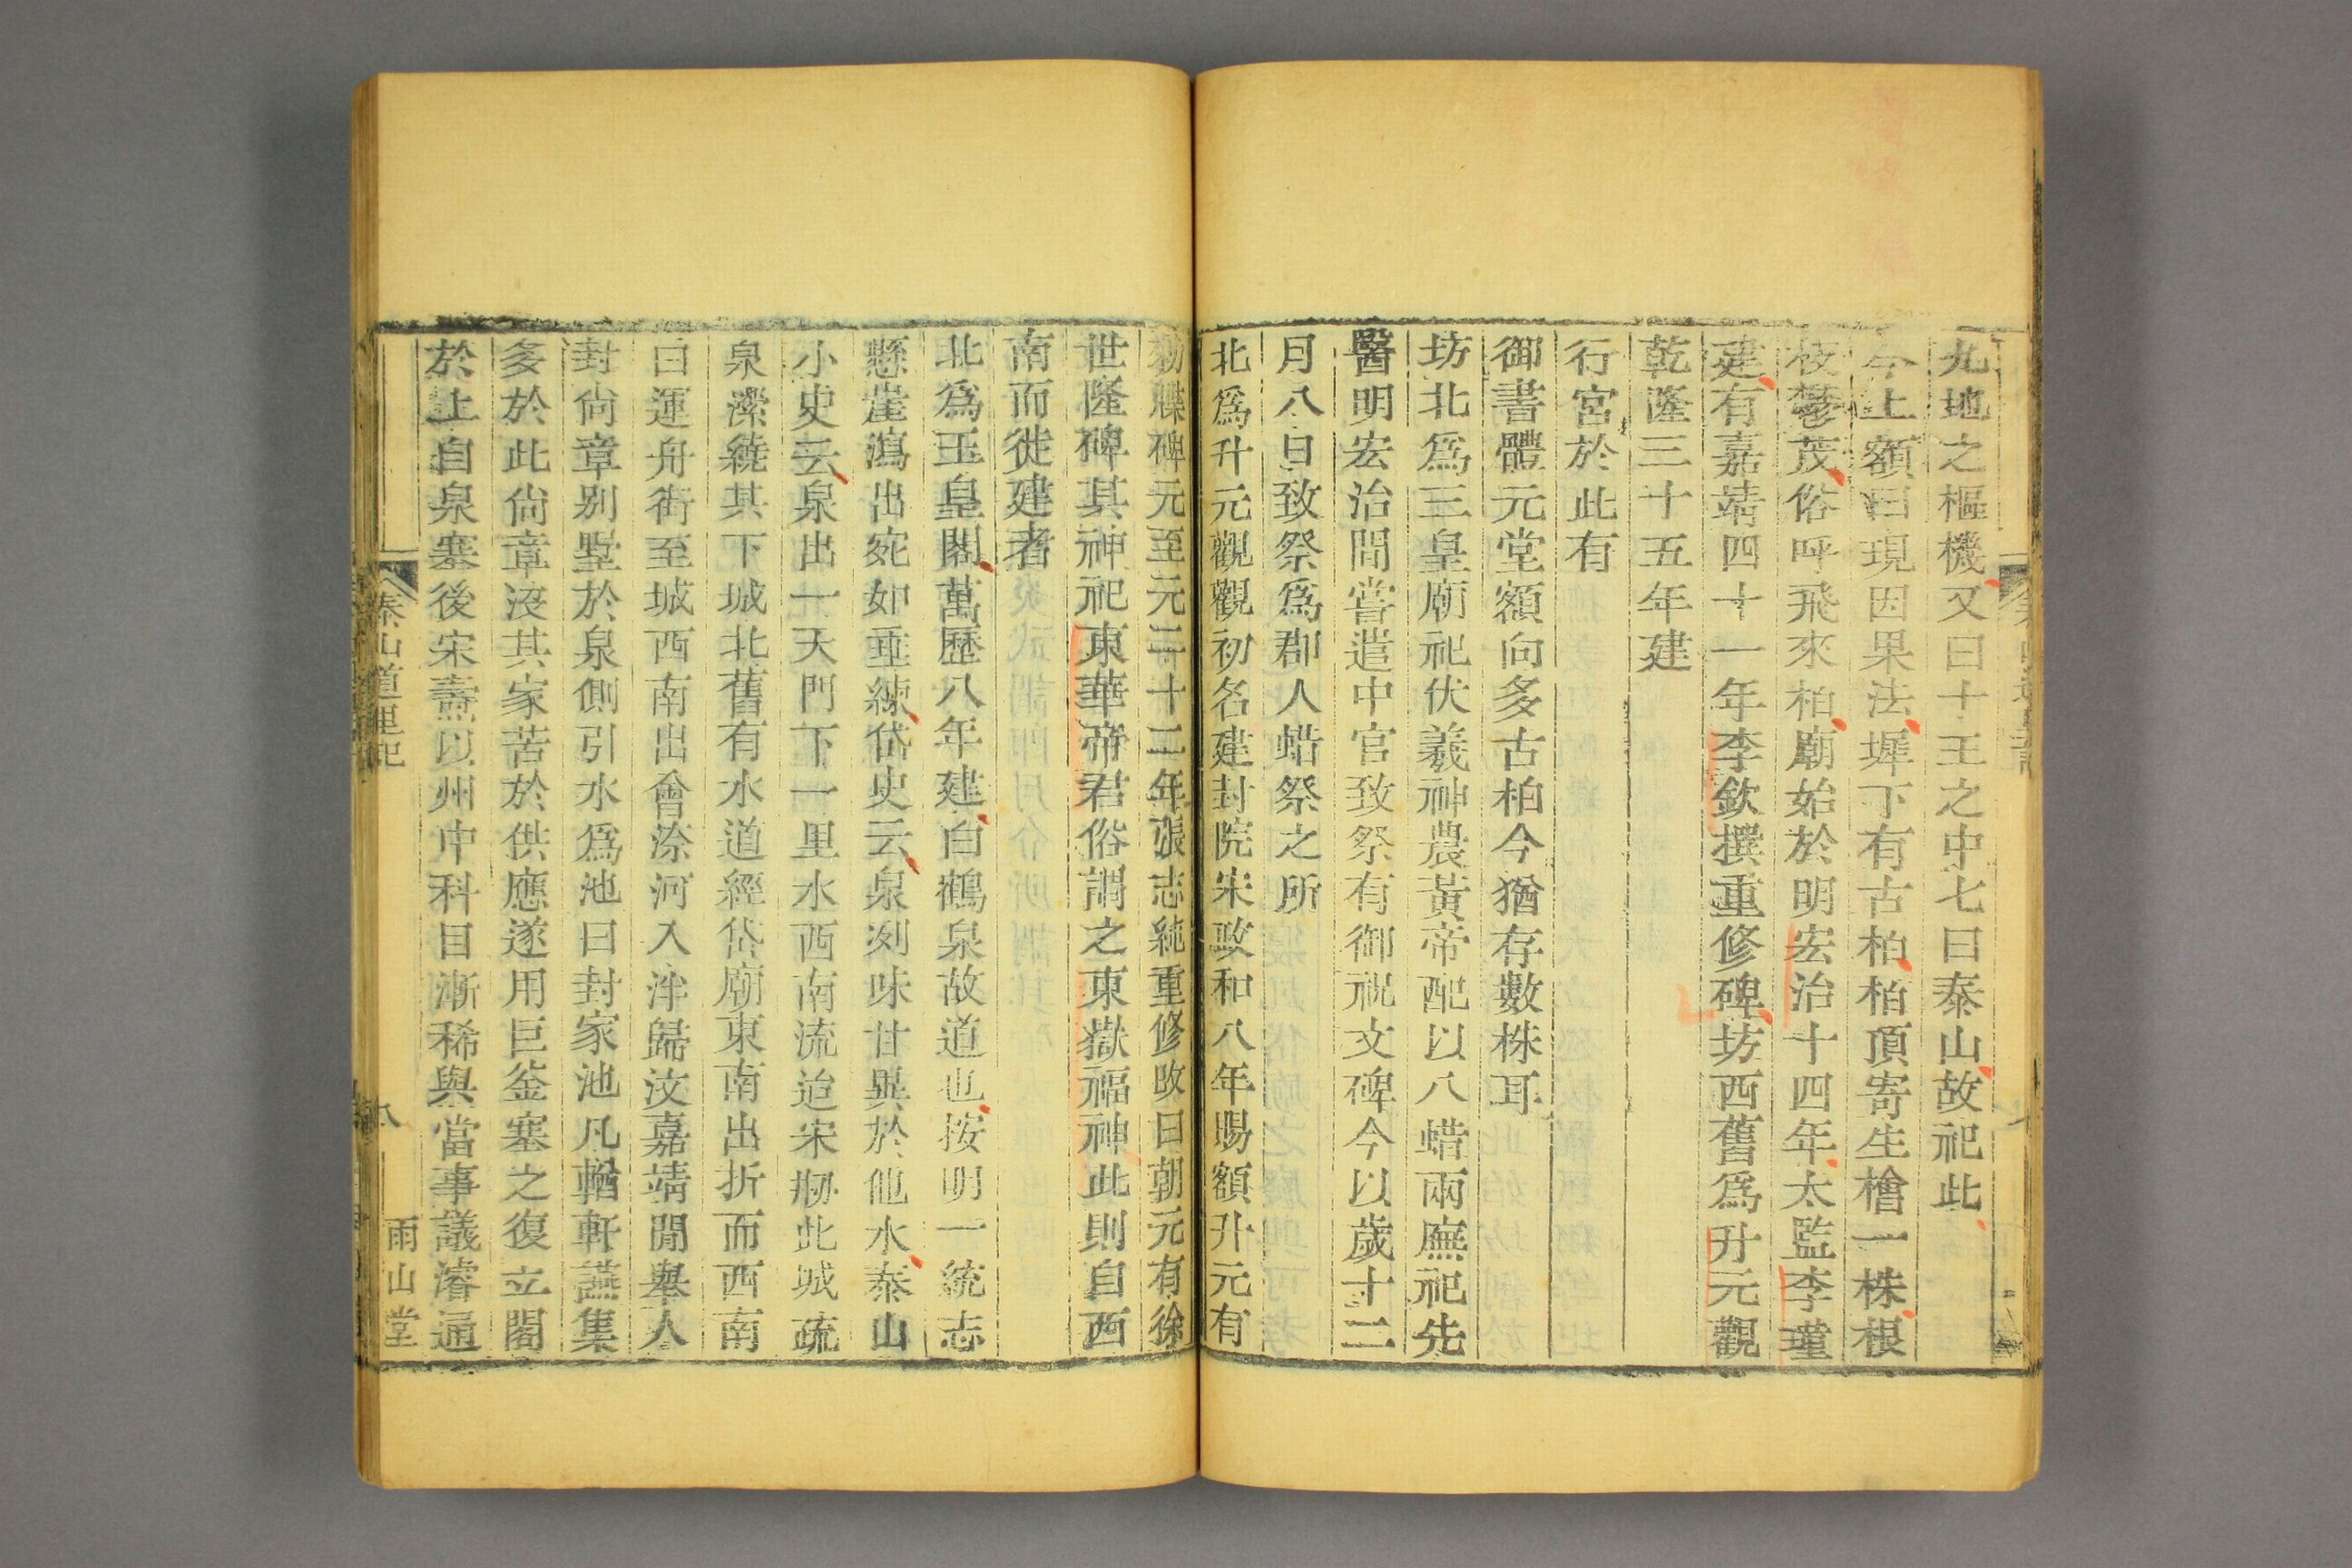 九地之樞機又曰十王之中七曰泰山故祀此
今上額曰現因果法墀下有古柏柏頂寄生檜一株根
枝鬱茂俗呼飛來柏廟始於明宏治十四年太監李瑾
建有嘉靖四十一年李欽撰重修碑坊西舊爲升元觀
乾隆三十五年建
行宮於此有
御書體元堂額向多古柏今猶存數株耳
坊北爲三皇廟祀伏羲神農黃帝配以八蜡兩廡祀先
醫明宏治間嘗遣中官致祭有御祝文碑今以歲十二
月八日致祭爲郡人蜡祭之所
北爲升元觀觀初名建封院宋政和八年賜額升元有
勑牒碑元至元二十二年張志純重修改曰朝元有徐
世隆碑其神祀東華帝君俗謂之東嶽福神此則自西
南而徙建者
北爲玉皇閣萬歷八年建白鶴泉故道也按明一統志
懸崖瀉出宛如垂練岱史云泉冽味甘異於他水泰山
小史云泉出一天門下一里水西南流迨宋剏此城疏
泉瀠繞其下城北舊有水道經岱廟東南出折而西南
曰運舟街至城西南出會漆河入泮歸汶嘉靖間舉人
封尙章別墅於泉側引水爲池曰封家池凡輶軒讌集
多於此尙章沒其家苦於供應遂用巨釜塞之復立閣
於上自泉塞後宋燾以州中科目漸稀與當事議濬通
泰山道里記
八
雨山堂